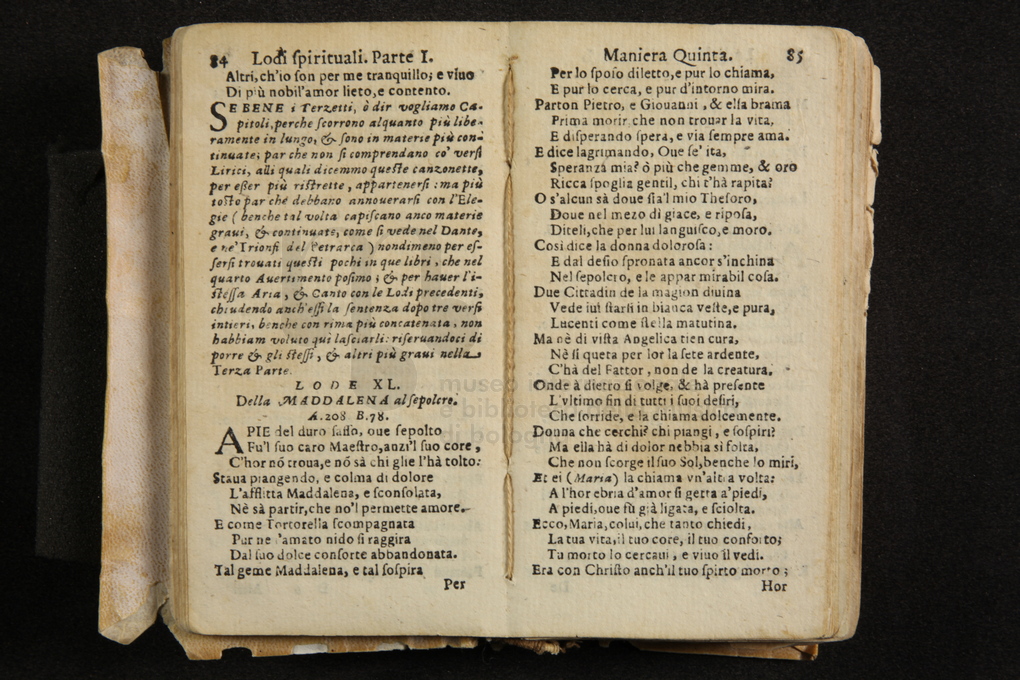 84 Lodi ſpirituali. Parte I.
Altri, ch'io ſon per me tranquillo; e viuo
Di più nobil'amor lieto, e contento.
SE BENE i Terzetti, ò dir vogliamo Ca-
pitoli, perche ſcorrono alquanto più libe-
ramente in lungo, & ſono in materie più con-
tinuate; par che non ſi comprendano co' verſi
Lirici, alli quali dicemmo queſte canzonette,
per eßer più riſtrette, appartenerſi: ma più
toſto par che debbano annouerarſi con l'Ele-
gie (benche tal volta capiſcano anco materie
graui, & continuate, come ſi vede nel Dante,
e ne' Trionfi del Petrarca) nondimeno per eſ-
ſerſi trouati queſti pochi in que libri, che nel
quarto Auertimento poſimo; & per hauer l'i-
ſteſſa Aria, & Canto con le Lodi precedenti,
chiudendo anch'eſſi la ſentenza dopo tre verſi
intieri, benche con rima più concatenata, non
habbiam voluto qui laſciarli: riſeruandoci di
porre & gli ſteſſi, & altri più graui nella
Terza Parte.
LODE XL.
Della MADDALENA al ſepolcro.
A. 208 B. 78.
A PIE del duro ſaſſo, oue ſepolto
Fu'l ſuo caro Maeſtro, anzi'l ſuo core,
C'hor nõ troua, e nõ sà chi glie l'hà tolto:
Staua piangendo, e colma di dolore
L'afflitta Maddalena, e ſconſolata,
Nè sà partir, che no'l permette amore.
E come Tortorella ſcompagnata
Pur ne l'amato nido ſi raggira
Dal ſuo dolce conſorte abbandonata.
Tal geme Maddalena, e tal ſoſpira
Per
Maniera Quinta. 85
Per lo ſpoſo diletto, e pur lo chiama,
E pur lo cerca, e pur d'intorno mira.
Parton Pietro, e Giouanni, & eſſa brama
Prima morir, che non trouar la vita,
E diſperando ſpera, e via ſempre ama.
E dice lagrimando, Oue ſe' ita,
Speranza mia? ò più che gemme, & oro
Ricca ſpoglia gentil, chi t'hà rapita?
O s'alcun sà doue ſia'l mio Theſoro,
Doue nel mezo dì giace, e ripoſa,
Diteli, che per lui languiſco, e moro.
Così dice la donna doloroſa:
E dal deſio ſpronata ancor s'inchina
Nel ſepolcro, e le appar mirabil coſa.
Due Cittadin de la magion diuina
Vede iui ſtarſi in bianca veſte, e pura,
Lucenti come ſtella matutina.
Ma nè di viſta Angelica tien cura,
Nè ſi queta per lor la ſete ardente,
C'hà del Fattor, non de la creatura.
Onde à dietro ſi volge, & hà preſente
L'vltimo fin di tutti i ſuoi deſiri,
Che ſorride, e la chiama dolcemente.
Donna che cerchi? chi piangi, e ſoſpiri?
Ma ella hà di dolor nebbia sì folta,
Che non ſcorge il ſuo Sol, benche lo miri,
Et ei (Maria) la chiama vn'altra volta:
A l'hor ebria d'amor ſi getta a' piedi,
A piedi, oue fù già ligata, e ſciolta.
Ecco, Maria, colui, che tanto chiedi,
La tua vita, il tuo core, il tuo conforto;
Tu morto lo cercaui, e viuo il vedi.
Era con Chriſto anch'il tuo ſpirto morto;
Hor